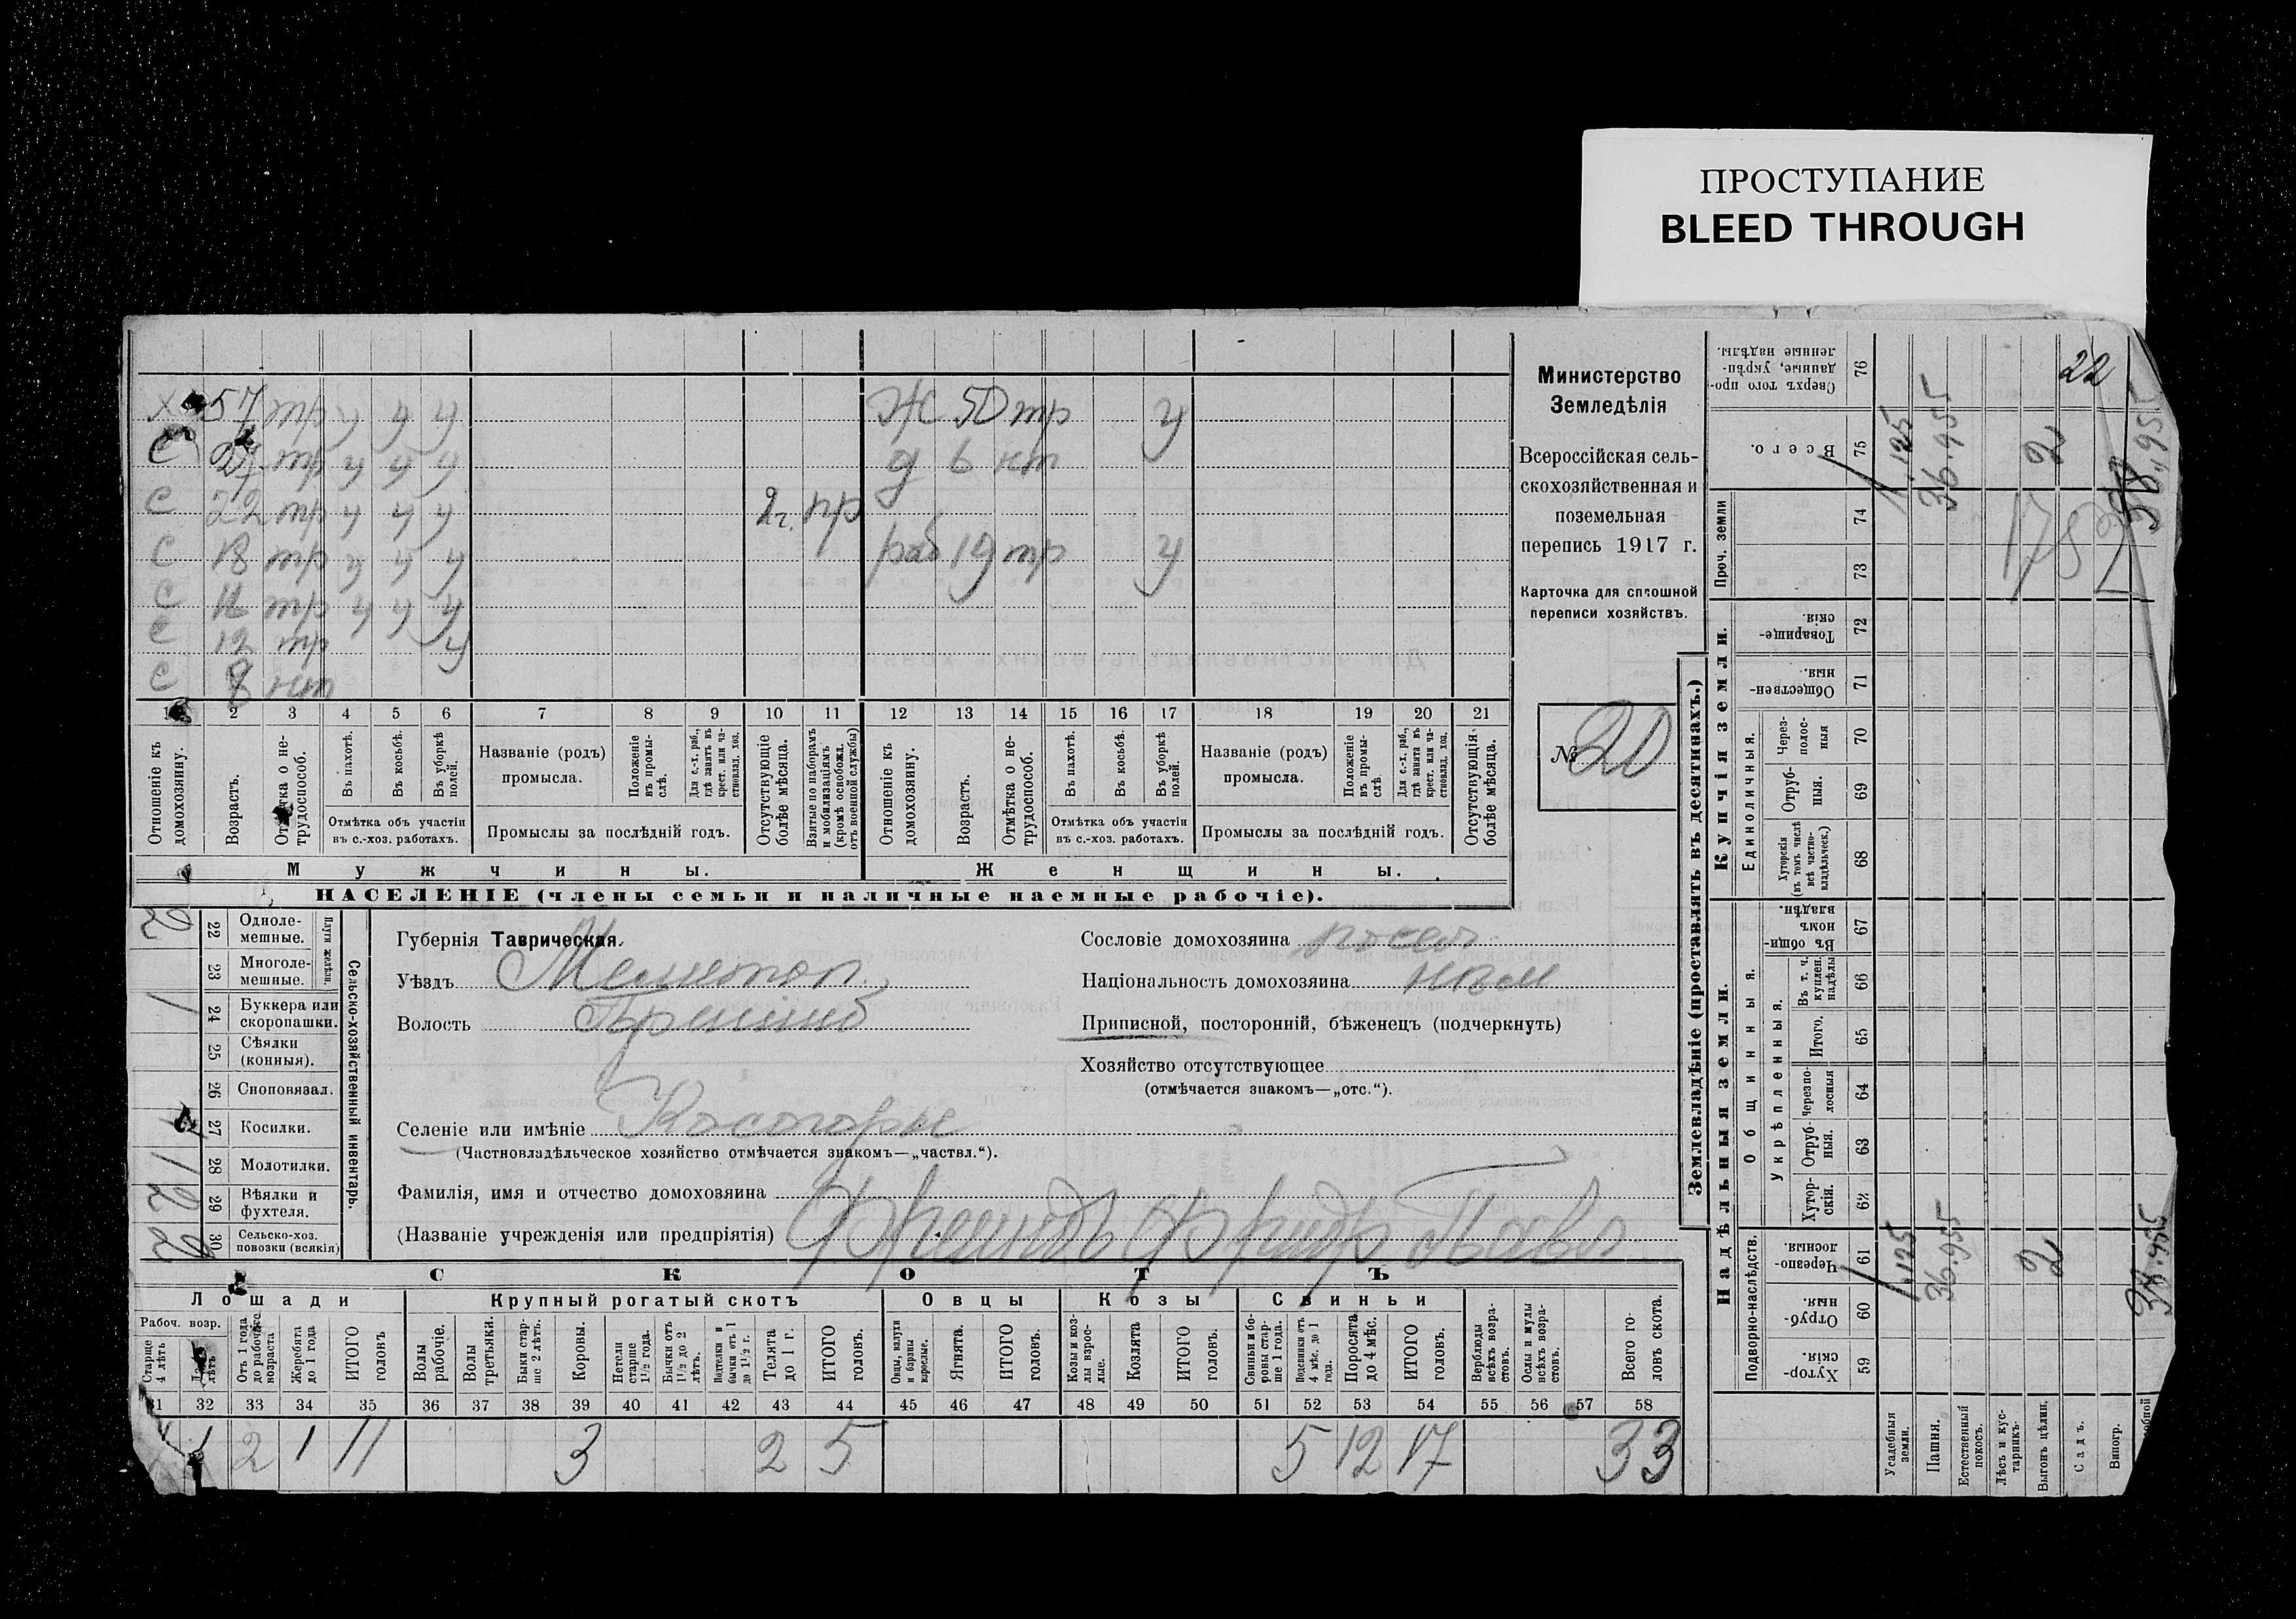 ПРОСТУПАНИЕ
BLEED THROUGH
Х 57 тр ч ч ч Ж 50 тр ч
С 27 тр ч ч ч д 6 нт
С 22 тр ч ч ч 2г. пр
С 18 тр ч ч ч раб 19 тр ч
С 16 тр ч ч ч
С 12 тр ч
С 8 нт
1 2 3 4 5 6 7 8 9 10 11 12 13 14 15 16 17 18 19 20 21
Отношеніе къ домохозяину.
Возрастъ.
Отмѣтка о не-трудоспособ.
Въ пахотѣ.
Въ косьбѣ.
Въ уборкѣ полей.
Отмѣтка объ участіи въ с.-хоз. работахъ.
Названіе (родъ) промысла.
Положеніе въ промы-слѣ.
Для с.-х. раб., гдѣ занятъ въ крест. или ча-стновлад. хоз.
Промыслы за послѣдній годъ.
Отсутствующіе болѣе мѣсяца.
Взятые по наборамъ и мобилизаціямъ (кромѣ освобожд. отъ военной службы)
Отношеніе къ домохозяину.
Возрастъ.
Отмѣтка о не-трудоспособ.
Въ пахотѣ.
Въ косьбѣ.
Въ уборкѣ полей.
Отмѣтка объ участіи въ с.-хоз. работахъ.
Названіе (родъ) промысла.
Положеніе въ промы-слѣ.
Для с.-х. раб., гдѣ занята въ крест. или ча-стновлад. хоз.
Промыслы за послѣдній годъ.
Отсутствующія болѣе мѣсяца.
Мужчины. Женщины.
НАСЕЛЕНІЕ (члены семьи и наличные наемные рабочіе).
Министерство
Земледѣлія
Всероссійская сель-
скохозяйственная и
поземельная
перепись 1917 г.
Карточка для сплошной
переписи хозяйствъ.
№ 20
Сельско-хозяйственный инвентарь.
Плуги желѣзн.
2 22 Одноле-мешные.
23 Многоле-мешные.
1 24 Буккера или скоропашки.
25 Сѣялки (конныя).
26 Сноповязал.
1 27 Косилки.
1 28 Молотилки.
2 29 Вѣялки и фухтеля.
2 30 Сельско-хоз. повозки (всякія)
Губернія Таврическая.
Уѣздъ Мелитоп.
Волость Пришиб
Селеніе или имѣніе Косогорье
(Частновладѣльческое хозяйство отмѣчается знакомъ—„частвл.“).
Фамилія, имя и отчество домохозяина
(Название учрежденія или предпріятія) Фридр Павл
Сословіе домохозяина посел.
Національность домохозяина нѣм
Приписной, посторонній, бѣженецъ (подчеркнуть)
Хозяйство отсутствующее
(отмѣчается знакомъ—„отс.“).
СКОТЪ
Лошади Крупный рогатый скотъ Овцы Козы Свиньи
Рабоч. возр.
Старше 4 лѣтъ
Отъ 1 года до рабочаго возраста
Жеребята до 1 года
ИТОГО головъ
Волы рабочіе.
Волы третьяки.
Быки стар-ше 2 лѣтъ.
Коровы.
Нетели старше 1½ года.
Бычки отъ 1½ до 2 лѣтъ.
Подтелки и бычки отъ 1 до 1½ г.
Телята до 1 г.
ИТОГО головъ.
Овцы, валухи и бараны взрослые.
Ягнята.
ИТОГО головъ.
Козы и коз-лы взрос-лые.
Козлята
ИТОГО головъ.
Свиньи и бо-ровы стар-ше 1 года.
Подсвинки отъ 4 мѣс. до 1 года.
Поросята до 4 мѣс.
ИТОГО головъ.
Верблюды всѣхъ возра-стовъ.
Ослы и мулы всѣхъ возра-стовъ.
Всего го-ловъ скота.
31 32 33 34 35 36 37 38 39 40 41 42 43 44 45 46 47 48 49 50 51 52 53 54 55 56 57 58
1 2 1 11 3 2 5 5 12 17 33
Землевладѣніе (проставлять въ десятинахъ.)
Купчія земли.
Проч. земли
Единоличныя.
Сверхъ того про-данные, укрѣп-ленные надѣлы. 76
Всего. 75
74
73
Товарище-скія 72
Обществен-ныя. 71
Через-полос-ныя 70
Отруб-ныя. 69
Хуторскія (въ томъ числѣ всѣ частно-владѣльческ.) 68
Надѣльныя земли.
Общинныя.
Укрѣпленныя.
Въ общин-номъ владѣн. 67
Въ т. ч. куплен. надѣлы 66
Итого. 65
Черезпо-лосныя 64
Отруб-ныя. 63
Хутор-скія. 62
Подворно-наслѣдств.
Черезпо-лосныя. 61
Отруб-ныя. 60
Хутор-скія. 59
Усадебныя земли.
Пашня.
Естественный покосъ.
Лѣсъ и кус-тарникъ.
Выгонъ цѣлин.
Садъ.
Виногр.
22
1.125
36.955
2
1.125
36.955
2